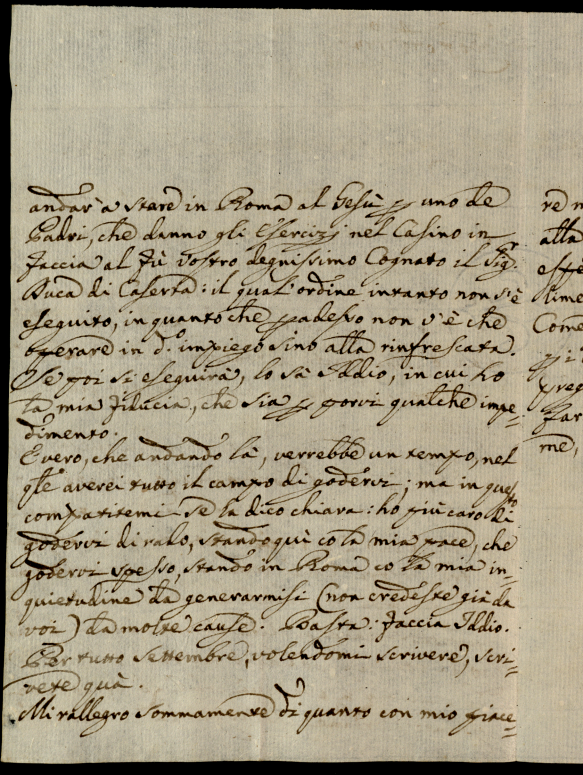 andar' à stare in Roma al Gesù p uno de
Padri, che danno gli Esercizj nel Casino in
faccia al fù vostro degnissimo Cognato il Sig.r
Duca di Caserta: il qual'ordine intanto non s'è
eseguito, in quanto che p adesso non v'è che
operare in d.o impiego sino alla rinfrescata.
Se poi si eseguirà, lo sà Iddio, in cui hò
la mia fiducia, che sia p porvi qualche impe=
dimento.
È vero, che andando là, verrebbe un tempo, nel
qle averei tutto il campo di godervi; ma in questo
compatitemi se la dico chiara: hò più caro di
godervi di rado, stando quì co la mia pace, che
godervi spesso, stando in Roma co la mia in=
quietudine da generarmisi (non credeste già da
voi) da molte cause. Basta: faccia Iddio.
Per tutto Settembre, volendomi scrivere, scri=
vete quà.
Mi rallegro sommamente di quanto con mio piace=
re
alla
Come
preg
far
me,